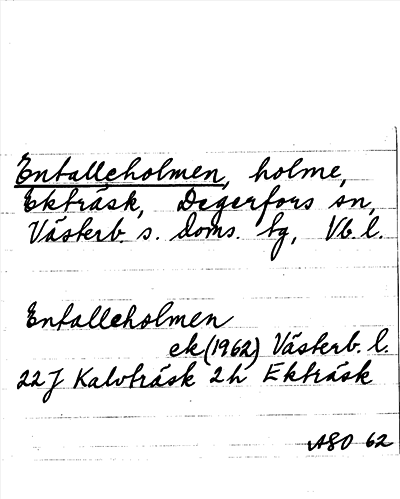 Entalleholmen, holme,
Ekträsk, Degerfors sn,
Västerb. s. doms. tg, Vb. l.
Entalleholmen
ek (1962) Västerb. l.
22J Kalvträsk 2h Ekträsk
ASO 62